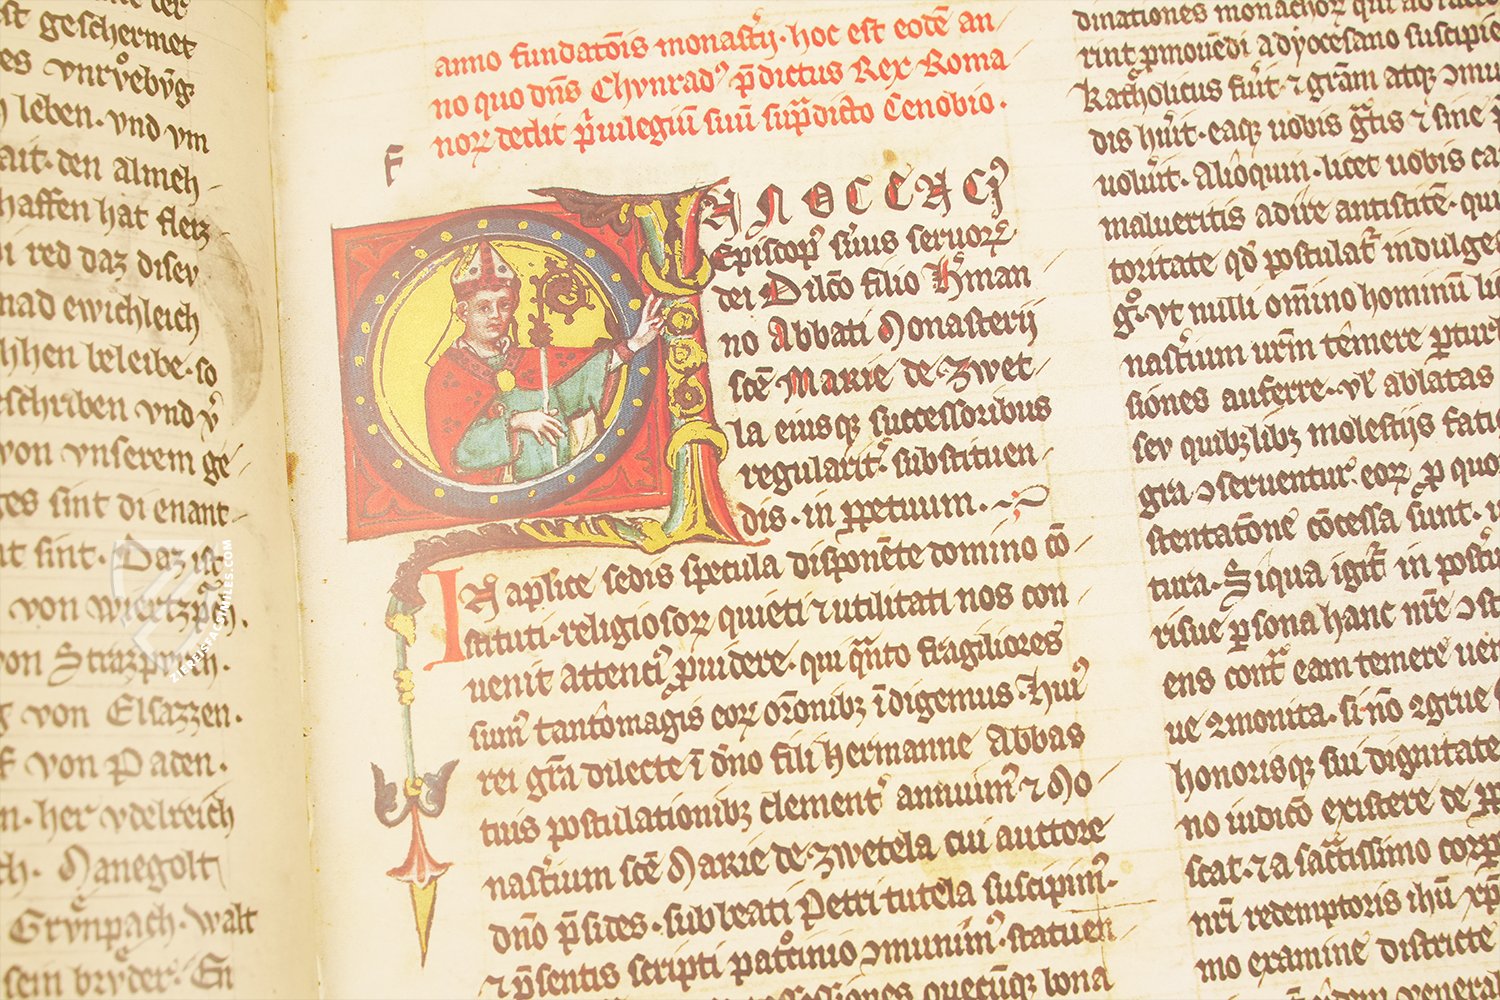 st geschermet
es vnrvͦebyg
leben · vnd vm
ait · den almeh
haffen hat flerz
red daz disev
nad ewichleich
hhen beleibe · so
eschriben vnd vͦ
von vnserem ge
ges sint di enant
at sint · Daz ist
von wiertzpͥg ·
von Strazpͥch ·
g von Elsazzen ·
von Paden ·
n · her vdelreich
ch · Manegolt
Grvͤnpach · walt
sein brvͤder · En
anno fundatōis monastͥij · hoc est eodē an
no quo dn̄s Chvnrad⁹ p̄dictus Rex Roma
noꝝ dedit pͥuilegiū suū sup̄dicto Cenobio ·
NNOCENCI⁹
Episcop⁹ seruus seruoꝝ
dei Dilc̄o filio Hͤman
no Abbati Monasterij
scē Marie de Zwet
la eiusqꝫ successoribus
regularit͛ substituen
dis · in ꝑpetuum ·
IN aplice sedis specula disponēte domino cō
stituti · religiosoꝝ quieti ⁊ utilitati nos con
uenit attenci⁹ ꝓuidere · qui qͣnto fragiliores
sum⁹ tanto magis eoꝝ or̄onibꝫ īdigemus · Hui⁹
rei grā dilecte ī dn̄o fili hermanne Abbas
tuis postulationibꝫ clement͛ annuim⁹ ⁊ Mo
nast͛ium scē Marie de Zwetela cui auctore
dn̄o p̄sides · sub beati Petri tutela suscipim⁹ ·
⁊ p̄sentis scripti patͦcinio ꝯmunim⁹ · statuen
quecūqꝫ bona
dinationes monachoꝝ qui ad
rint ꝓmouēdi a dyocesano suscipie
Katholicus fu͛it · ⁊ grām atqꝫ ꝯmu
dis hu͛it · eaqꝫ uobis gͣtis ⁊ sine
uolu͛it · Alioquin · licet uobis ca
malueritis adire antistitē · qui
toritate qd̄ postulat͛ indulge
gͦ · vt nulli om̄ino hominū li
nast͛ium ur̄m temere ꝑtur
siones auferre · vl̄ ablatas
sev quibꝫlibꝫ molestijs fati
gͣri ꝯseruentur · eoꝝ ꝓ quo
stentatōne cōcessa sunt ·
tura · Si qua igit͛ in post͛
risue ꝑsona hanc nr̄e ꝯst
ens contͣ eam temere uen
ue ꝯmonita · si nō ꝯgrue
honorisqꝫ sui dignitate
no iudicō existere de ꝑp
scat · ⁊ a sacͣtissimo corp
nr̄i redemptoris ihū xp̄i
mo examine districte
ZIEREISFACSIMILES.COM